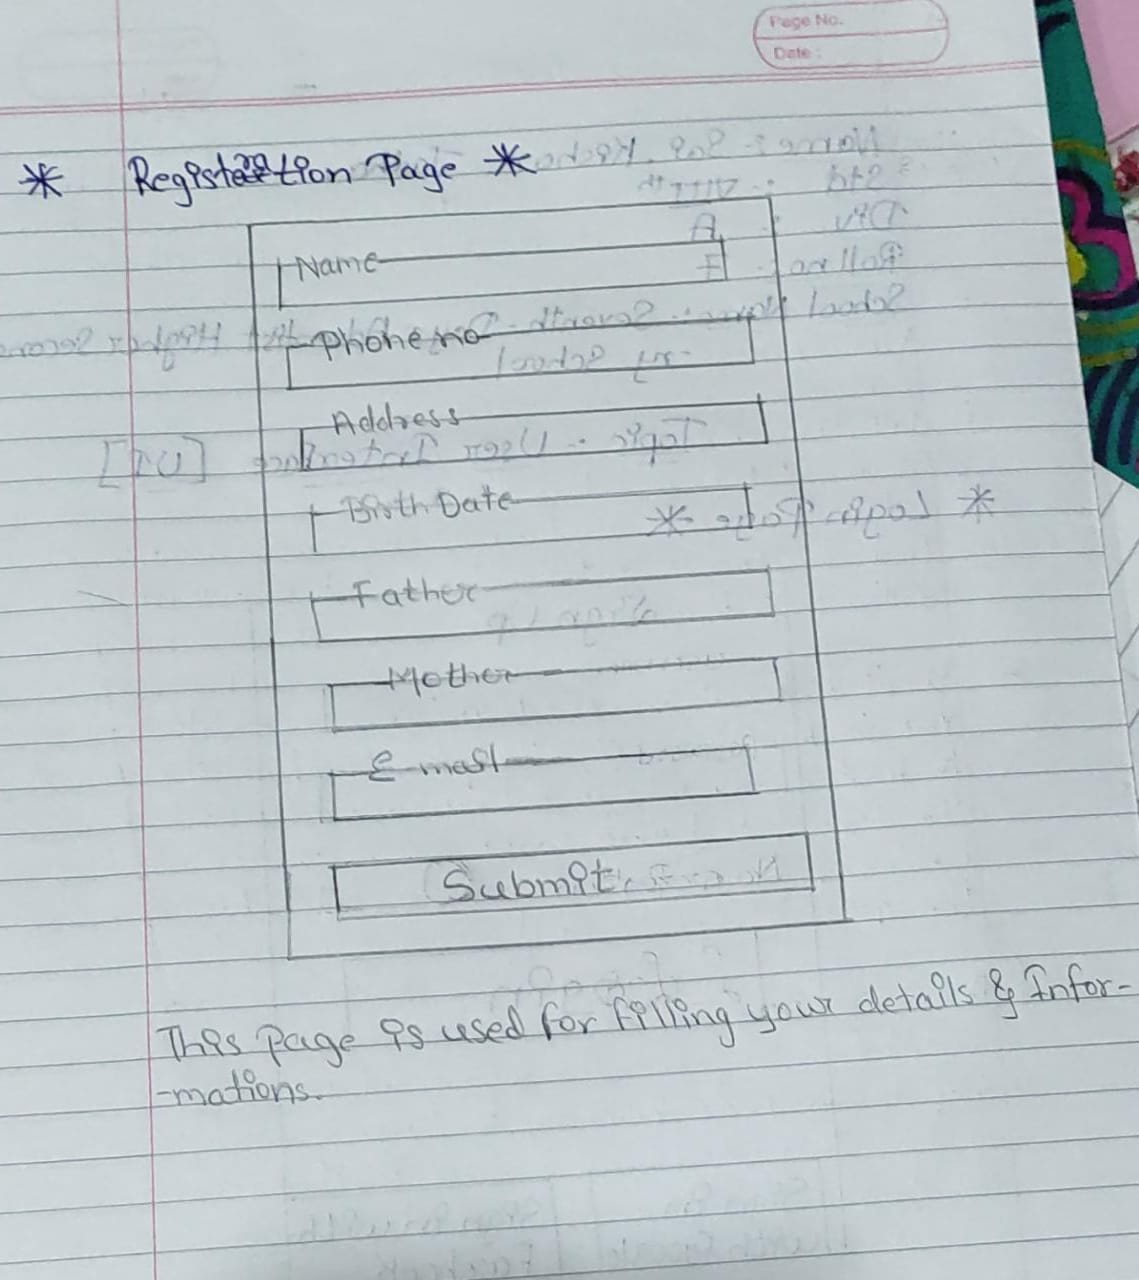 Page No.
Date:
* Registration Page *
Name
Phone no
Address
Birth Date
Father
Mother
E-mail
Submit
This page is used for filling your details & Infor-
-mations.